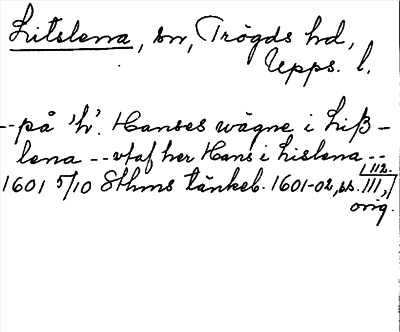 Litslena, sn, Trögds hd,
Upps. l.
--på 'h'. Hanses wägne i Liß-
lena -- vtaf her Hans i Lislena --
1601 5/10 Sthms tänkeb. 1601-02, ss. 111, 112.
orig.